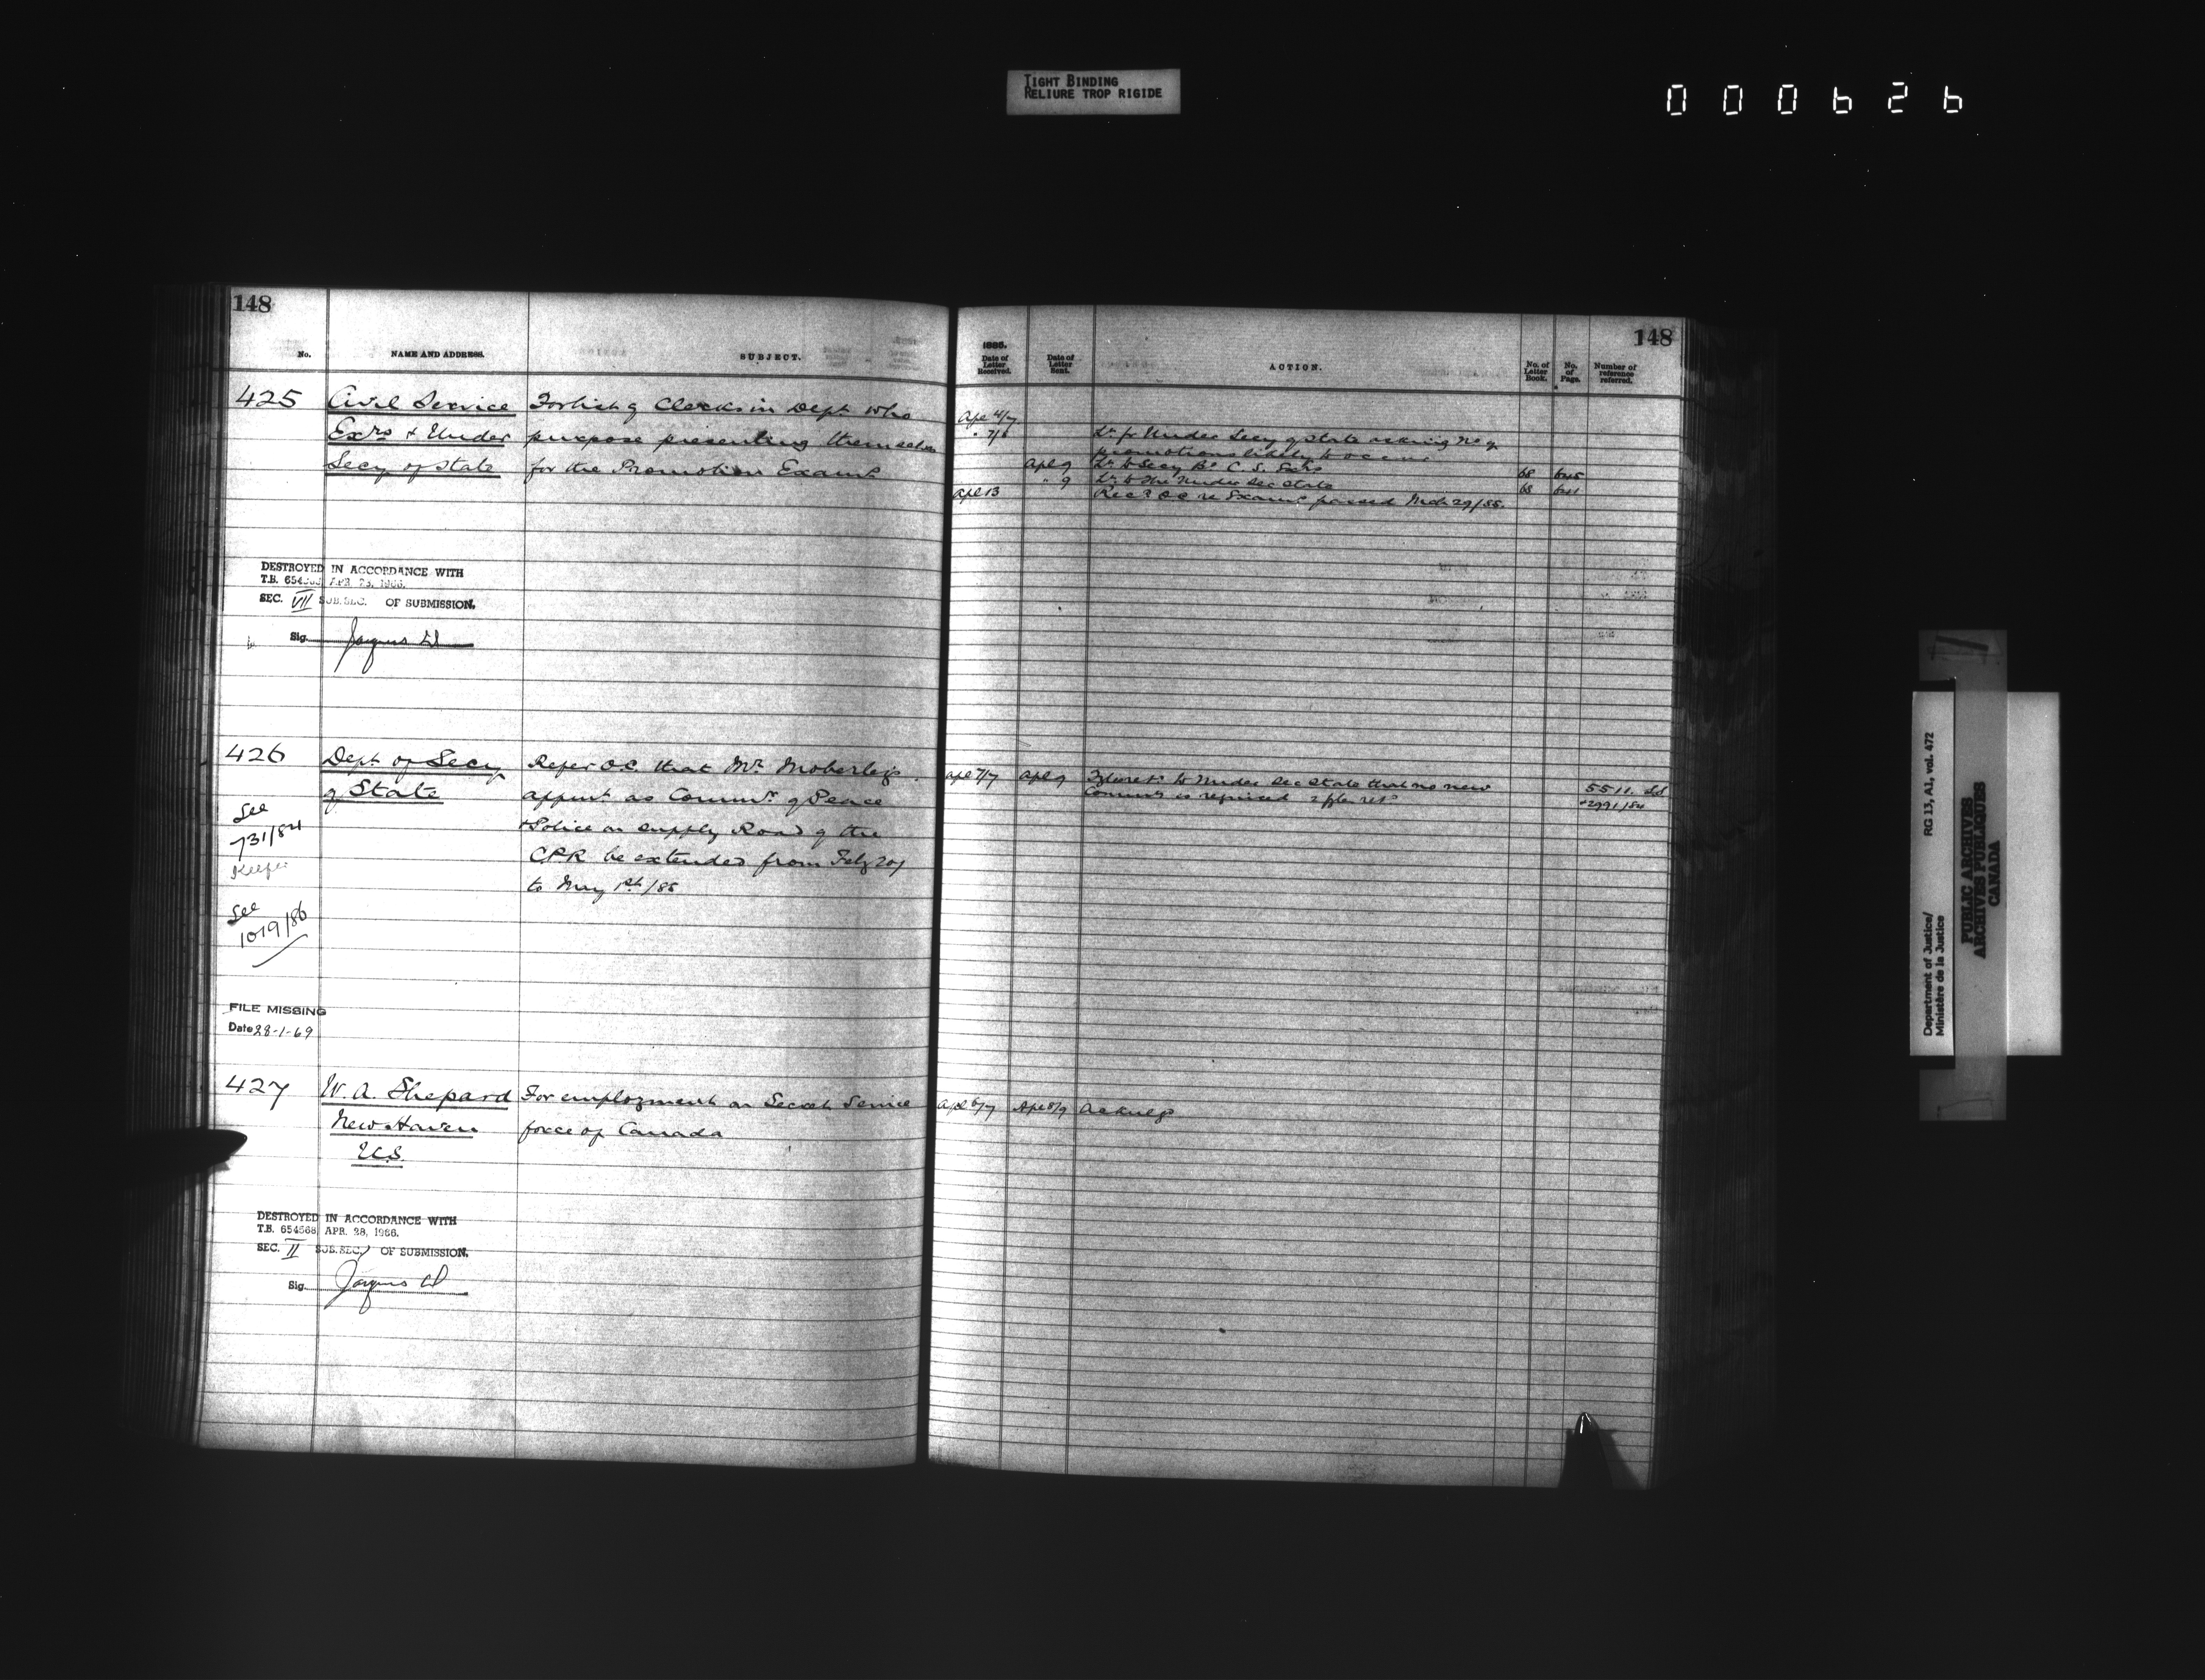 TIGHT BINDING
RELIURE TROP RIGIDE
000626
148
No. NAME AND ADDRESS. SUBJECT.
425 Civil Service For list of Clerks in Dept who
Exrs + Under purpose presenting themselves
Secy of State for the Promotion Exams
DESTROYED IN ACCORDANCE WITH
T.B. APR.
SEC. VII SUB.SEC. OF SUBMISSION.
Sig.
426 Dept of Secy Refer O.C. that Mr. Moberley's
of State appmt. as Commr. of Peace
See + Police on supply Road of the
731/84 CPR be extended from Feby 20/
Keefer to May 1st/85
See
1019/86
FILE MISSING
Date 28-1-69
427 W. A. Shepard For employment on Secret Service
New Haven force of Canada
U.S.
DESTROYED IN ACCORDANCE WITH
T.B. 654568 APR. 28, 1966.
SEC. II SUB.SEC. OF SUBMISSION.
Sig.
148
1885.
Date of Letter Received. Date of Letter Sent. ACTION. No. of Letter Book. No. of Page. Number of reference referred.
Apl 4/7
" 7/ Lr. fr Under Secy of State asking No of
promotions likely to occur
Apl 9 Lr. to Secy Bd C. S. Exrs 68
" 9 Lr. to the Under Sec State 68
Apl 13 Recd O.C. re Exams passed Mch 29/85.
Apl 7/7 Apl 9 to Under Sec State that no new 5511.
Commn is required + 2991/84
Apl 6/7 Apl 8/9 Acknlg
Department of Justice/
Ministère de la Justice
RG 13, A1, vol. 472
PUBLIC ARCHIVES
ARCHIVES PUBLIQUES
CANADA